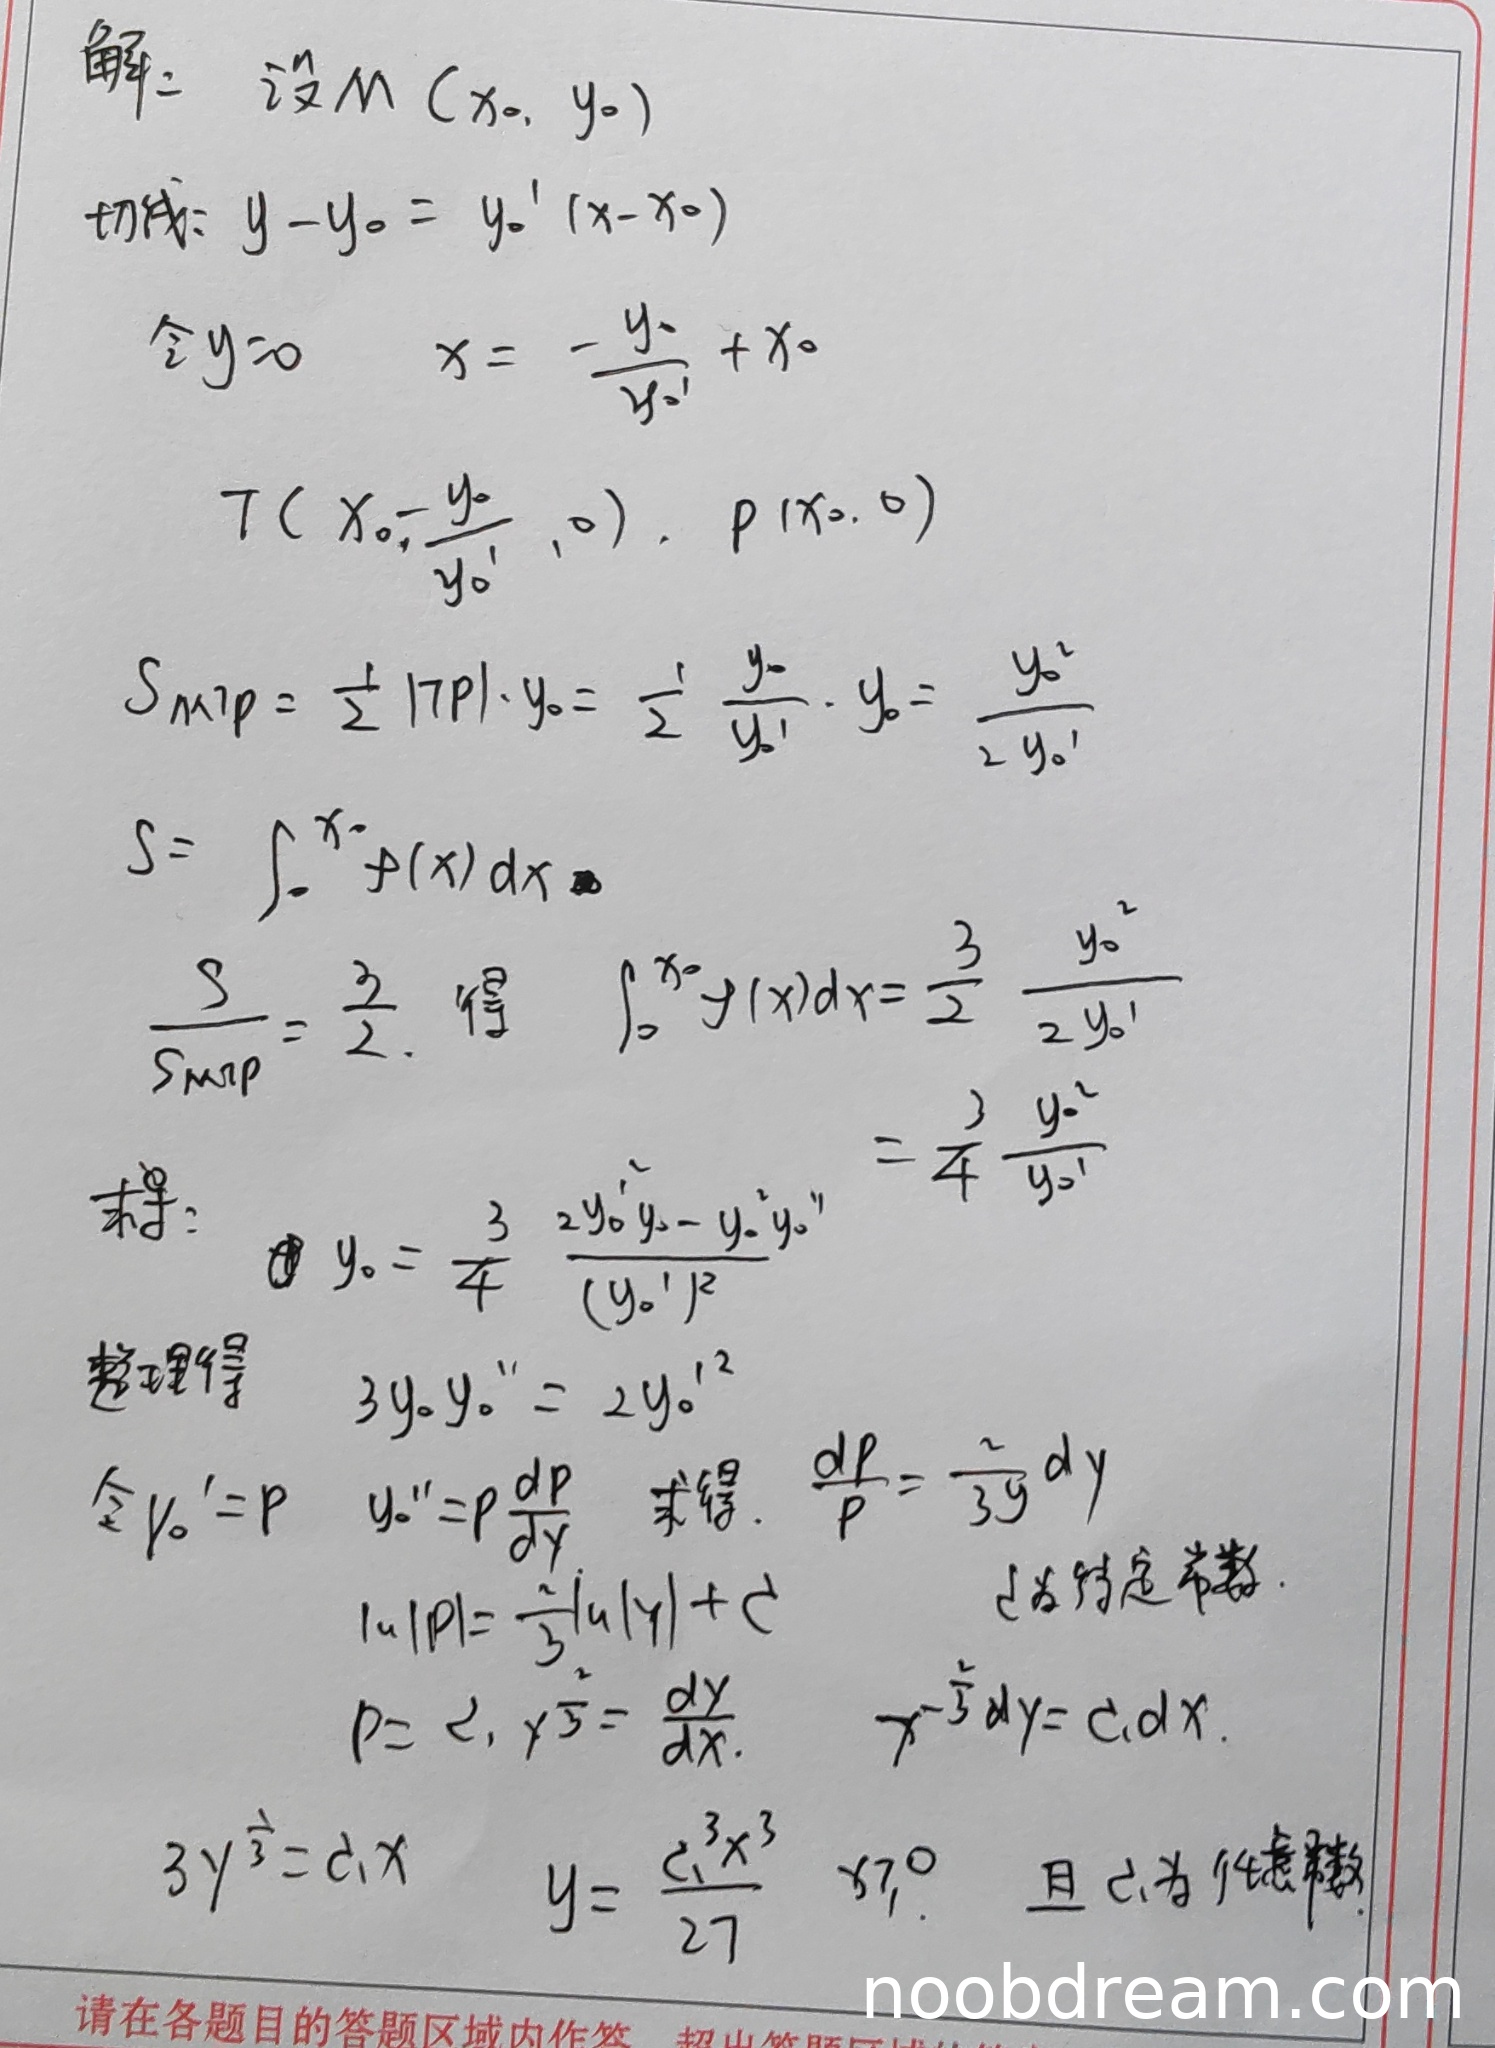 解: 设M(x₀, y₀)
切线: y-y₀ = y₀'(x-x₀)
令y=0 x = -y₀/y₀' + x₀
T(x₀-y₀/y₀', 0). P(x₀, 0)
S_MTP = 1/2 |TP|·y₀ = 1/2 y₀/y₀' · y₀ = y₀²/2y₀'
S = ∫₀^x₀ f(x)dx
S/S_MTP = 3/2. 得 ∫₀^x₀ f(x)dx = 3/2 y₀²/2y₀'
= 3/4 y₀²/y₀'
求导: y₀ = 3/4 (2y₀'²y₀ - y₀²y₀'')/(y₀')²
整理得 3y₀y₀'' = 2y₀'²
令y₀'=P y₀''=P dP/dy 求得. dP/P = 2/3y dy
ln|P| = 2/3 ln|y| + C C为待定常数.
P = C₁y^(2/3) = dy/dx. y^(-2/3)dy = C₁dx.
3y^(1/3) = C₁x y = C₁³x³/27 x≥0. 且C₁为任意常数.
请在各题目的答题区域内作答
noobdream.com